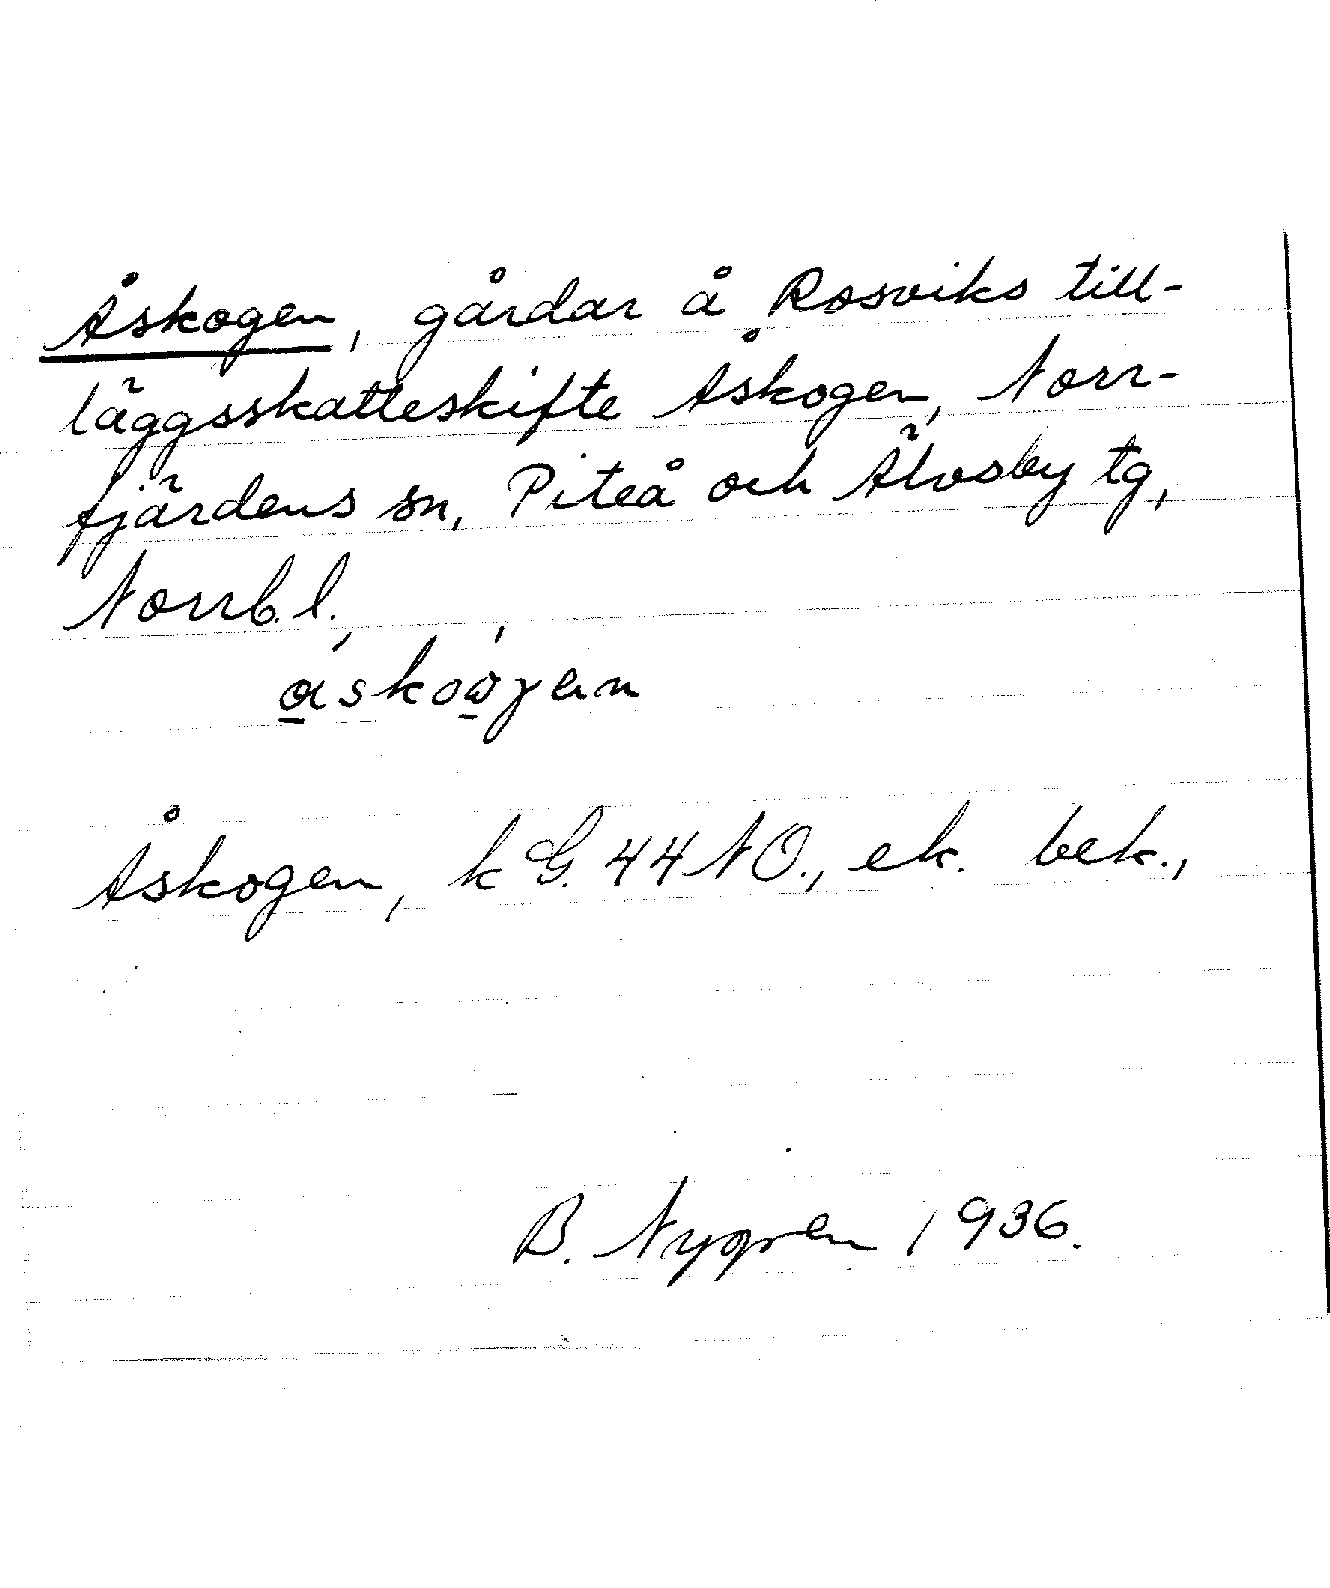 Åskogen, gårdar å Rosviks till-
läggsskatteskifte Åskogen, Norr-
fjärdens sn, Piteå och Älvsby tg,
Norrb. l.
Åskogen, k G. 44 NO., ek. bek.,
B. Nygren 1936.